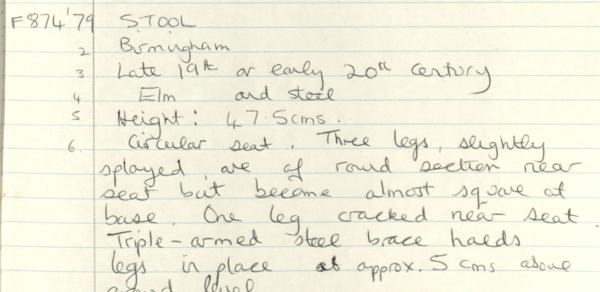 F874'79 STOOL
2 Birmingham
3 Late 19th or early 20th century
4 Elm and steel
5 Height: 47.5cms.
6. Circular seat. Three legs, slightly
splayed, are of round section near
seat but become almost square at
base. One leg cracked near seat.
Triple-armed steel brace holds
legs in place at approx. 5 cms above
ground level